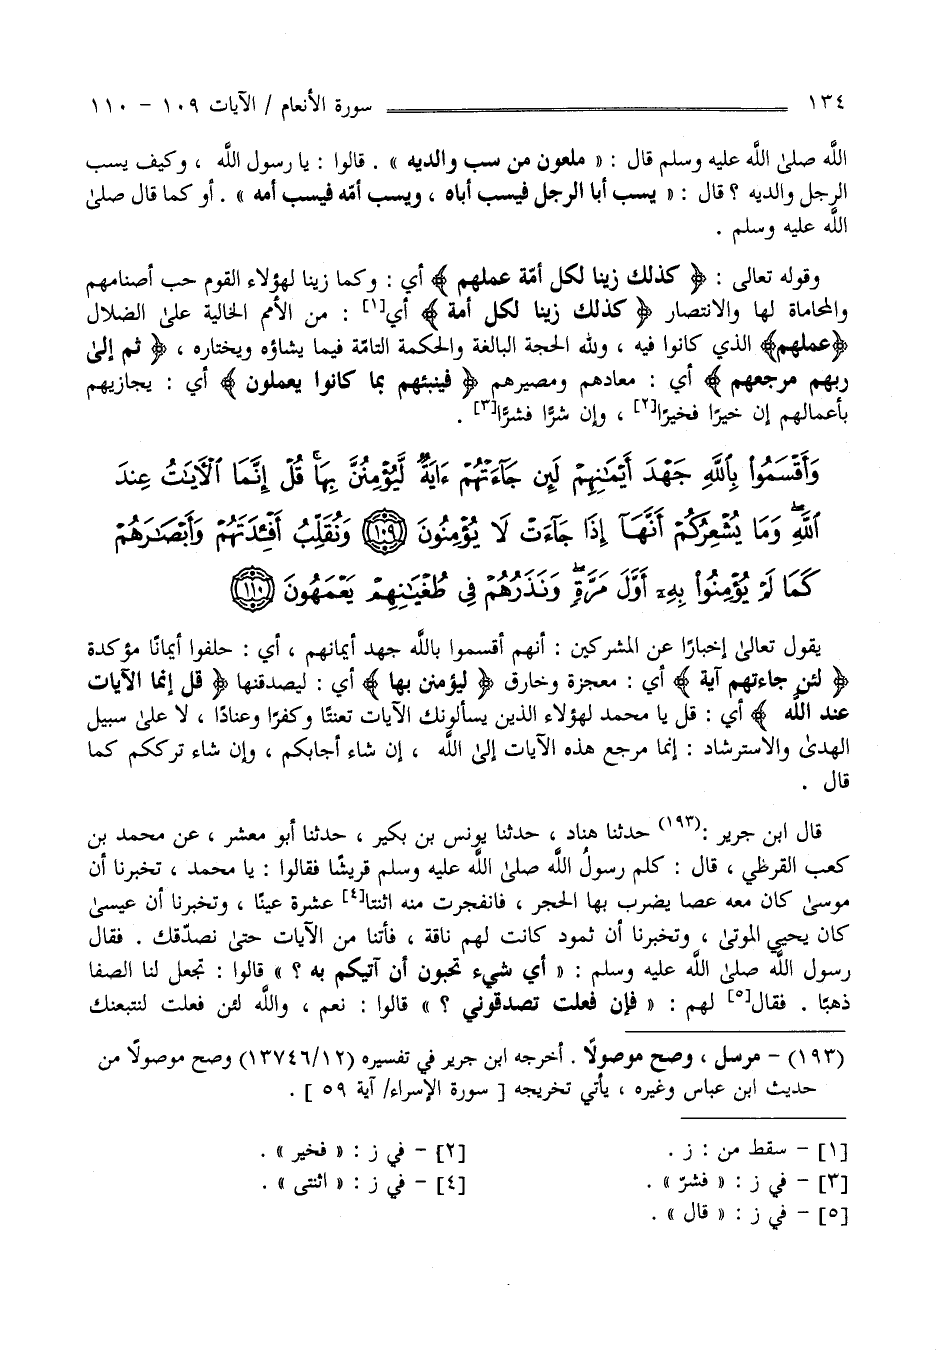 ١٣٤ سورة الأنعام / الآيات ١٠٩ - ١١٠
اللَّه صلىٰ اللَّه عليه وسلم قال : « ملعون من سب والديه » . قالوا : يا رسول اللَّه ، وكيف يسب
الرجل والديه ؟ قال : « يسب أبا الرجل فيسب أباه ، ويسب أمّه فيسب أمه » . أو كما قال صلىٰ
اللَّه عليه وسلم .
وقوله تعالى : ﴿ كذلك زينا لكل أمّة عملهم ﴾ أي : وكما زينا لهؤلاء القوم حب أصنامهم
والمحاماة لها والانتصار ﴿ كذلك زينا لكل أمة ﴾ أي[١] : من الأمم الخالية علىٰ الضلال
﴿عملهم﴾ الذي كانوا فيه ، ولله الحجة البالغة والحكمة التامّة فيما يشاؤه ويختاره ، ﴿ ثم إلىٰ
ربهم مرجعهم ﴾ أي : معادهم ومصيرهم ﴿ فينبئهم بما كانوا يعملون ﴾ أي : يجازيهم
بأعمالهم إن خيرًا فخيرًا[٢] ، وإن شرًّا فشرًّا[٣] .
وَأَقْسَمُوا۟ بِٱللَّهِ جَهْدَ أَيْمَٰنِهِمْ لَئِن جَآءَتْهُمْ ءَايَةٌ لَّيُؤْمِنُنَّ بِهَا ۚ قُلْ إِنَّمَا ٱلْءَايَٰتُ عِندَ
ٱللَّهِ ۖ وَمَا يُشْعِرُكُمْ أَنَّهَآ إِذَا جَآءَتْ لَا يُؤْمِنُونَ ﴿١٠٩﴾ وَنُقَلِّبُ أَفْـِٔدَتَهُمْ وَأَبْصَٰرَهُمْ
كَمَا لَمْ يُؤْمِنُوا۟ بِهِۦٓ أَوَّلَ مَرَّةٍ ۖ وَنَذَرُهُمْ فِى طُغْيَٰنِهِمْ يَعْمَهُونَ ﴿١١٠﴾
يقول تعالىٰ إخبارًا عن المشركين : أنهم أقسموا باللَّه جهد أيمانهم ، أي : حلفوا أيمانًا مؤكدة
﴿ لئن جاءتهم آية ﴾ أي : معجزة وخارق ﴿ ليؤمنن بها ﴾ أي : ليصدقنها ﴿ قل إنما الآيات
عند اللَّه ﴾ أي : قل يا محمد لهؤلاء الذين يسألونك الآيات تعنتًا وكفرًا وعنادًا ، لا علىٰ سبيل
الهدىٰ والاسترشاد : إنما مرجع هذه الآيات إلىٰ اللَّه ، إن شاء أجابكم ، وإن شاء ترككم كما
قال .
قال ابن جرير :(١٩٣) حدثنا هناد ، حدثنا يونس بن بكير ، حدثنا أبو معشر ، عن محمد بن
كعب القرظي ، قال : كلم رسولُ اللَّه صلىٰ اللَّه عليه وسلم قريشًا فقالوا : يا محمد ، تخبرنا أن
موسىٰ كان معه عصا يضرب بها الحجر ، فانفجرت منه اثنتا[٤] عشرة عينًا ، وتخبرنا أن عيسىٰ
كان يحيي الموتىٰ ، وتخبرنا أن ثمود كانت لهم ناقة ، فأتنا من الآيات حتىٰ نصدّقك . فقال
رسول اللَّه صلىٰ اللَّه عليه وسلم : « أي شيء تحبون أن آتيكم به ؟ » قالوا : تجعل لنا الصفا
ذهبًا . فقال[٥] لهم : « فإن فعلت تصدقوني ؟ » قالوا : نعم ، واللَّه لئن فعلت لنتبعنك
(١٩٣) - مرسل ، وصح موصولًا . أخرجه ابن جرير في تفسيره (١٣٧٤٦/١٢) وصح موصولًا من
حديث ابن عباس وغيره ، يأتي تخريجه [ سورة الإسراء/ آية ٥٩ ] .
[١] - سقط من : ز . [٢] - في ز : « فخير » .
[٣] - في ز : « فشرّ » . [٤] - في ز : « اثنتى » .
[٥] - في ز : « قال » .